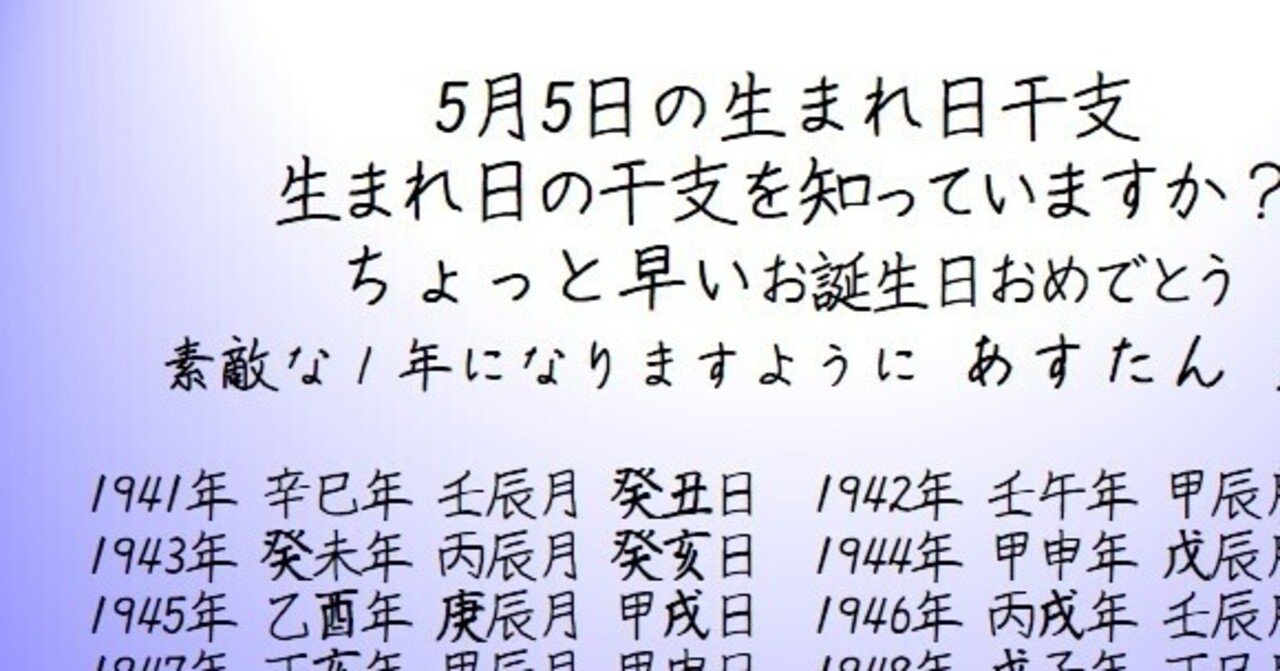 5月5日の生まれ日干支
生まれ日の干支を知っていますか?
ちょっと早いお誕生日おめでとう
素敵な1年になりますように あすたん
1941年 辛巳年 壬辰月 癸丑日 1942年 壬午年 甲辰月
1943年 癸未年 丙辰月 癸亥日 1944年 甲申年 戊辰月
1945年 乙酉年 庚辰月 甲戌日 1946年 丙戌年 壬辰月
1947年 丁亥年 甲辰月 甲申日 1948年 戊子年